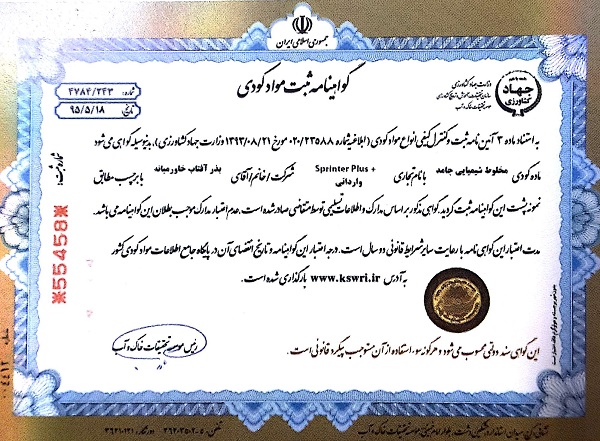 جمهوری اسلامی ایران
گواهینامه ثبت مواد کودی
شماره: ۴۷۸۴/۲۴۳
تاریخ: ۹۵/۵/۱۸
وزارت جهاد کشاورزی
سازمان تحقیقات، آموزش و ترویج کشاورزی
موسسه تحقیقات خاک و آب
جهاد
کشاورزی
به استناد ماده ۳ آئین نامه ثبت و کنترل کیفی انواع مواد کودی (ابلاغیه شماره ۰۲۰/۲۳۵۸۸ مورخ ۱۳۹۳/۰۸/۲۱ وزارت جهاد کشاورزی)، بدینوسیله گواهی می شود
ماده کودی مخلوط شیمیایی جامد با نام تجاری Sprinter Plus + وارداتی شرکت / خانم / آقای بذر آفتاب خاورمیانه با برچسب مطابق
نمونه پشت این گواهینامه ثبت گردید. گواهی مذکور بر اساس مدارک و اطلاعات تسلیمی توسط متقاضی صادر شده است. عدم اعتبار مدارک موجب بطلان این گواهینامه می باشد.
مدت اعتبار این گواهی نامه با رعایت سایر شرایط قانونی دو سال است. درجه اعتبار این گواهینامه و تاریخ انقضای آن در پایگاه جامع اطلاعات مواد کودی کشور
به آدرس www.kswri.ir بارگذاری شده است.
شماره ثبت:
*55458*
رئیس موسسه تحقیقات خاک و آب
این گواهی سند دولتی محسوب می شود و هرگونه سوء استفاده از آن مستوجب پیگرد قانونی است.